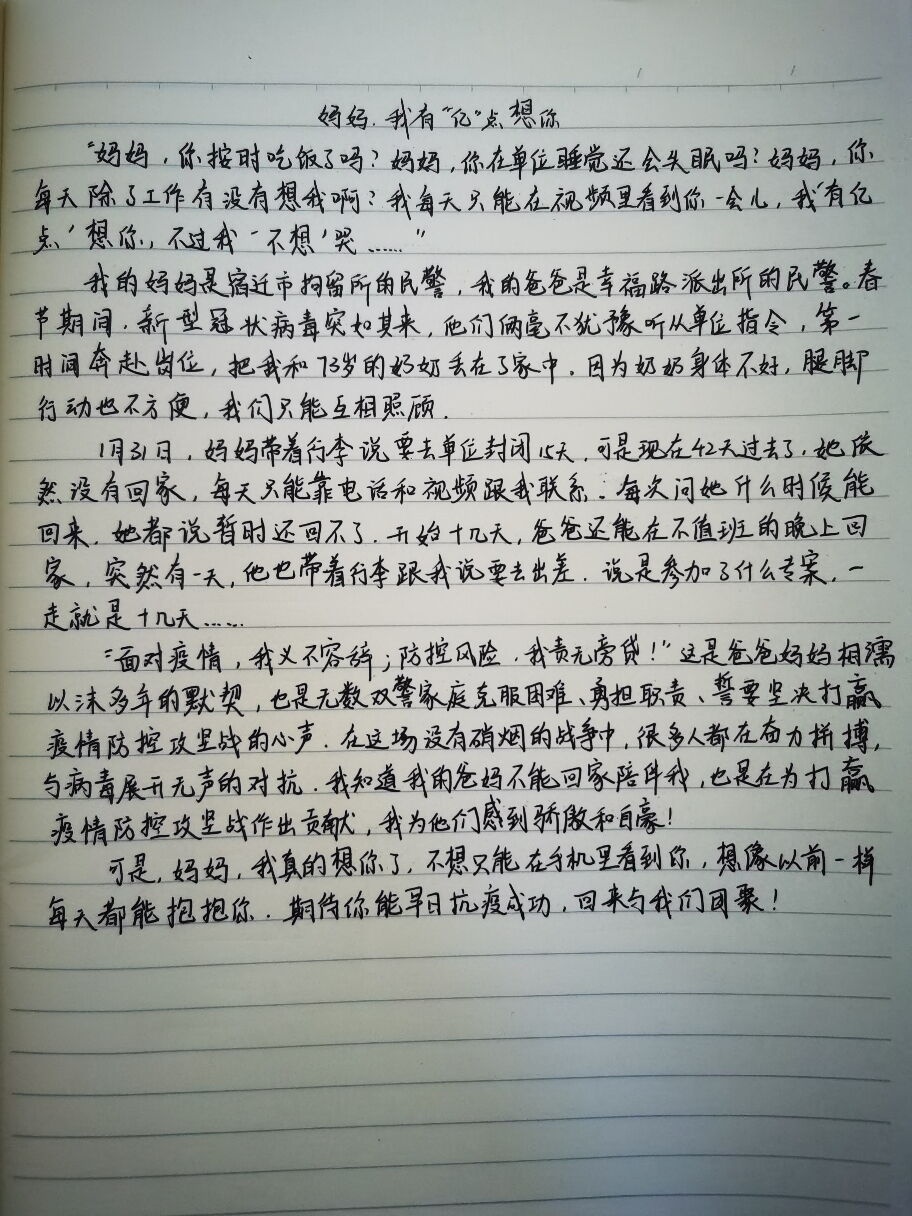 妈妈，我有“亿”点想你
“妈妈，你按时吃饭了吗？妈妈，你在单位睡觉还会失眠吗？妈妈，你
每天除了工作有没有想我啊？我每天只能在视频里看到你一会儿，我‘有亿
点’想你，不过我‘不想’哭……”
我的妈妈是宿迁市拘留所的民警，我的爸爸是幸福路派出所的民警。春
节期间，新型冠状病毒突如其来，他们俩毫不犹豫听从单位指令，第一
时间奔赴岗位，把我和73岁的奶奶丢在了家中，因为奶奶身体不好，腿脚
行动也不方便，我们只能互相照顾.
1月31日，妈妈带着行李说要去单位封闭15天，可是现在42天过去了，她依
然没有回家，每天只能靠电话和视频跟我联系。每次问她什么时候能
回来，她都说暂时还回不了.开始十几天，爸爸还能在不值班的晚上回
家，突然有一天，他也带着行李跟我说要去出差.说是参加了什么专案，一
走就是十几天……
“面对疫情，我义不容辞；防控风险，我责无旁贷！”这是爸爸妈妈相濡
以沫多年的默契，也是无数双警家庭克服困难、勇担职责、誓要坚决打赢
疫情防控攻坚战的心声.在这场没有硝烟的战争中，很多人都在奋力拼搏，
与病毒展开无声的对抗.我知道我的爸妈不能回家陪伴我，也是在为打赢
疫情防控攻坚战作出贡献，我为他们感到骄傲和自豪！
可是，妈妈，我真的想你了，不想只能在手机里看到你，想像以前一样
每天都能抱抱你.期待你能早日抗疫成功，回来与我们团聚！